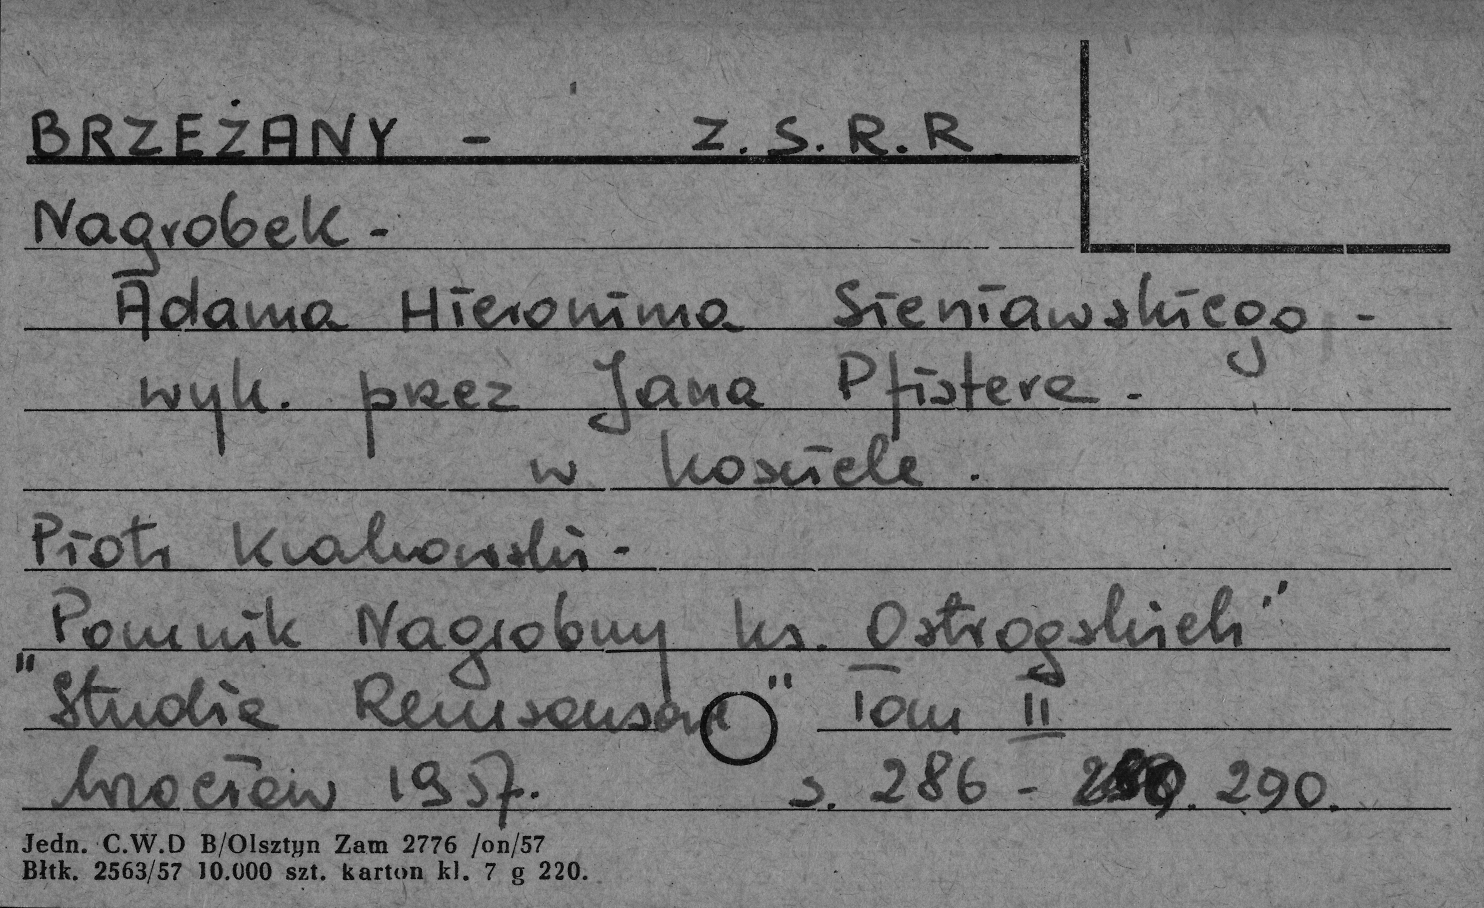 BRZEŻANY - Z.S.R.R
Nagrobek -
Adama Hieronima Sieniawskiego -
wyk. przez Jana Pfistera -
w kościele .
Piotr Krakowski -
Pomnik Nagrobny ks. Ostrogskich"
"Studia Renesansowe" Tom II
Wrocław 1957. s. 286 - 290.
Jedn. C.W.D B/Olsztyn Zam 2776 /on/57
Błtk. 2563/57 10.000 szt. karton kl. 7 g 220.